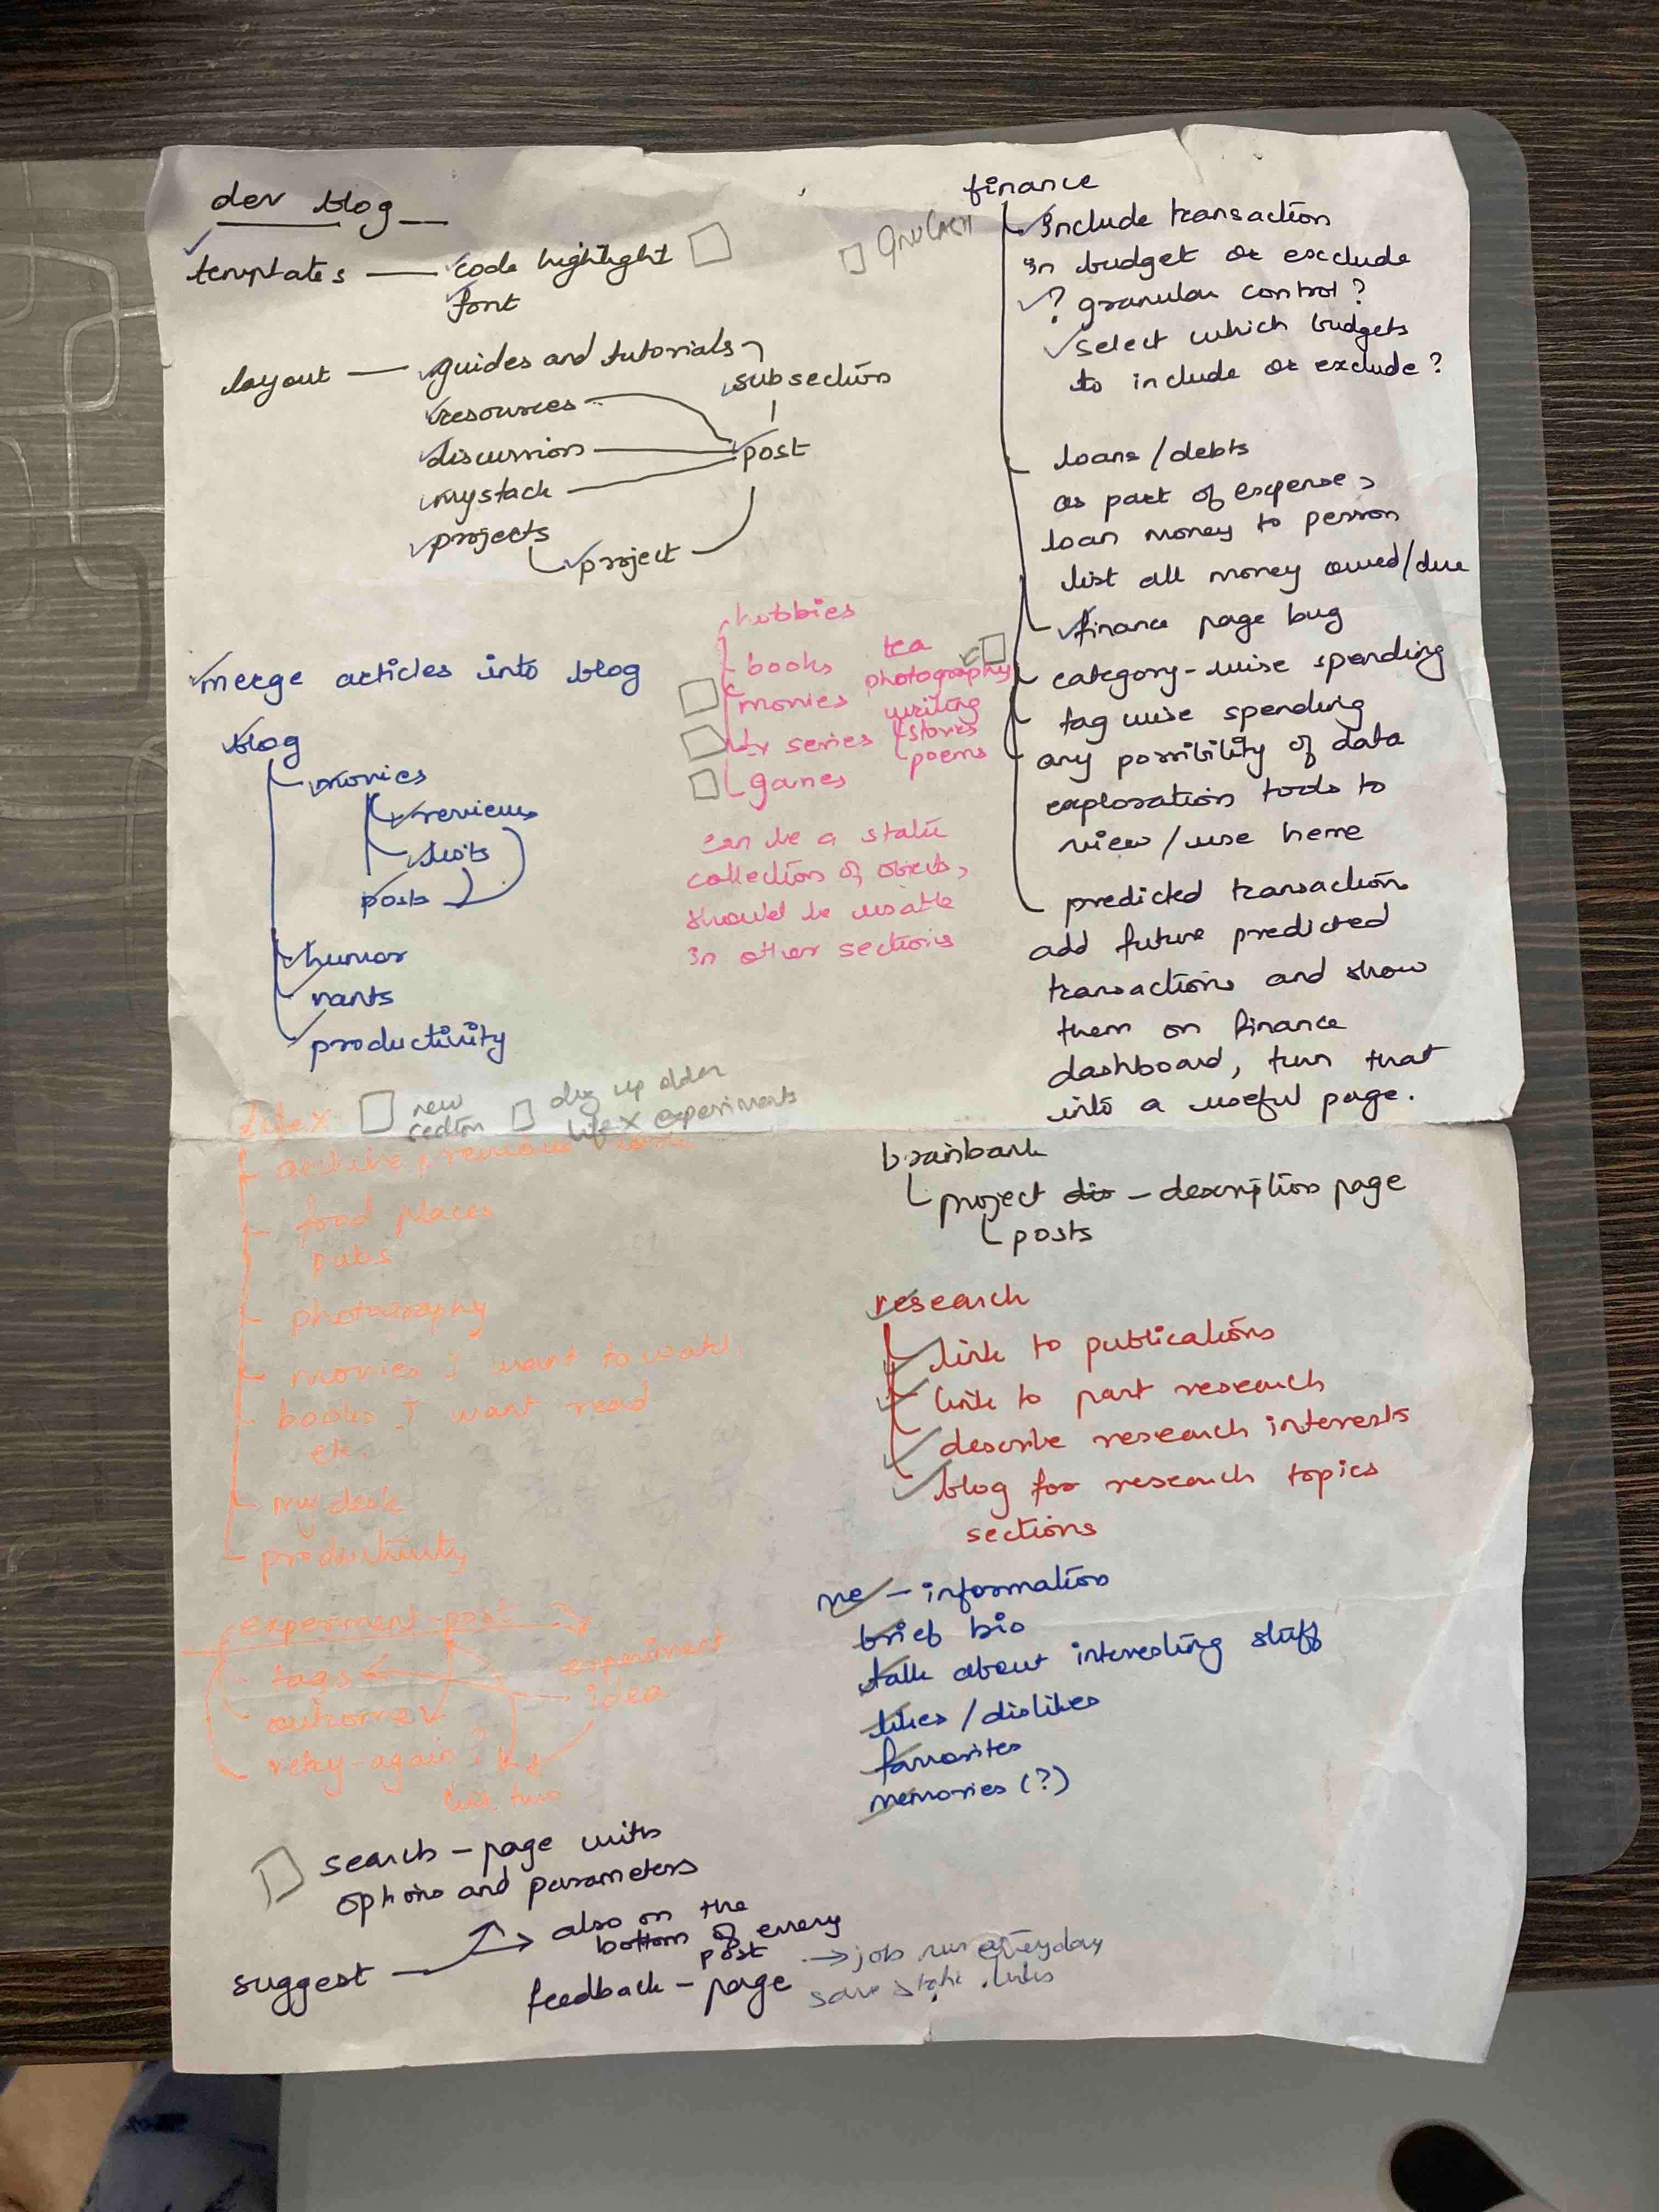 dev blog
templates — code highlight
font
layout — guides and tutorials
subsection
resources
discussion
post
mystack
projects
project
merge articles into blog
blog
movies
reviews
lists
posts
humor
rants
productivity
hobbies
books
movies
tv series
games
tea
photography
writing
stories
poems
can be a static
collection of objects,
should be usable
in other sections
finance
include transaction
in budget or exclude
? granular control?
select which budgets
to include or exclude?
loans/debts
as part of expense,
loan money to person
list all money owed/due
finance page bug
category-wise spending
tag wise spending
any possibility of data
exploration tools to
view/use here
predicted transactions
add future predicted
transactions and show
them on finance
dashboard, turn that
into a useful page.
lifeX
new
section
dig up older
life X experiments
archive previous
food places
pubs
photography
movies I want to watch
books I want read
etc.
my desk
productivity
experiment-post
tags
outcome
retry-again?
experiment
idea
link two
brainbank
project dis - description page
posts
research
link to publications
link to past research
describe research interests
blog for research topics
sections
me - information
brief bio
talk about interesting stuff
likes/dislikes
favorites
memories (?)
search - page with
options and parameters
suggest
also on the
bottom of every
post
feedback - page
job run everyday
save links